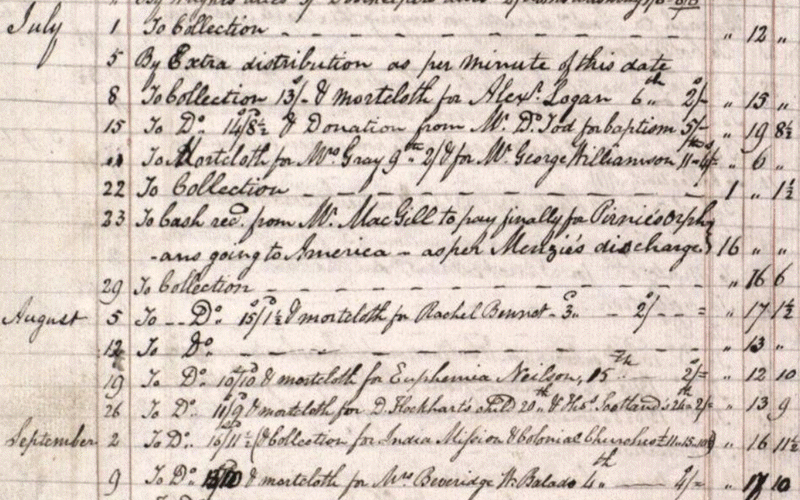 July 1 To Collection " 12 "
5 By Extra distribution as per minute of this date
8 To Collection 13/- & mortcloth for Alexr. Logan 6th 2/- " 15 "
15 To Do. 14/8½ & Donation from Mr. D. Tod for baptism 5/- " 19 8½
" To Mortcloth for Mrs Gray 9th 2/ & for Mr George Williamson 11th 4/= " 6 "
22 To Collection 1 " 1½
23 To Cash recd. from Mr. MacGill to pay finally for Pirnie's Orph
-ans going to America - as per Menzie's discharge } 16 " "
29 To Collection " 16 6
August 5 To Do. 15/1½ & mortcloth for Rachel Bennot 3 2/ = " 17 1½
12 To Do. " 13 "
19 To Do. 10/10 & mortcloth for Euphemia Neilson, 15th 2/= " 12 10
26 To Do. & mortcloth for D. Lockhart's child 20th & Scotland's 24th 2/= " 13 9
September 2 To Do. 16/11½ (& Collection for India Mission & Colonial Churches £11-15-10½) " 16 11½
9 To Do. & mortcloth for Mrs Beveridge Wr. Balado 4th 2/= " 17 10